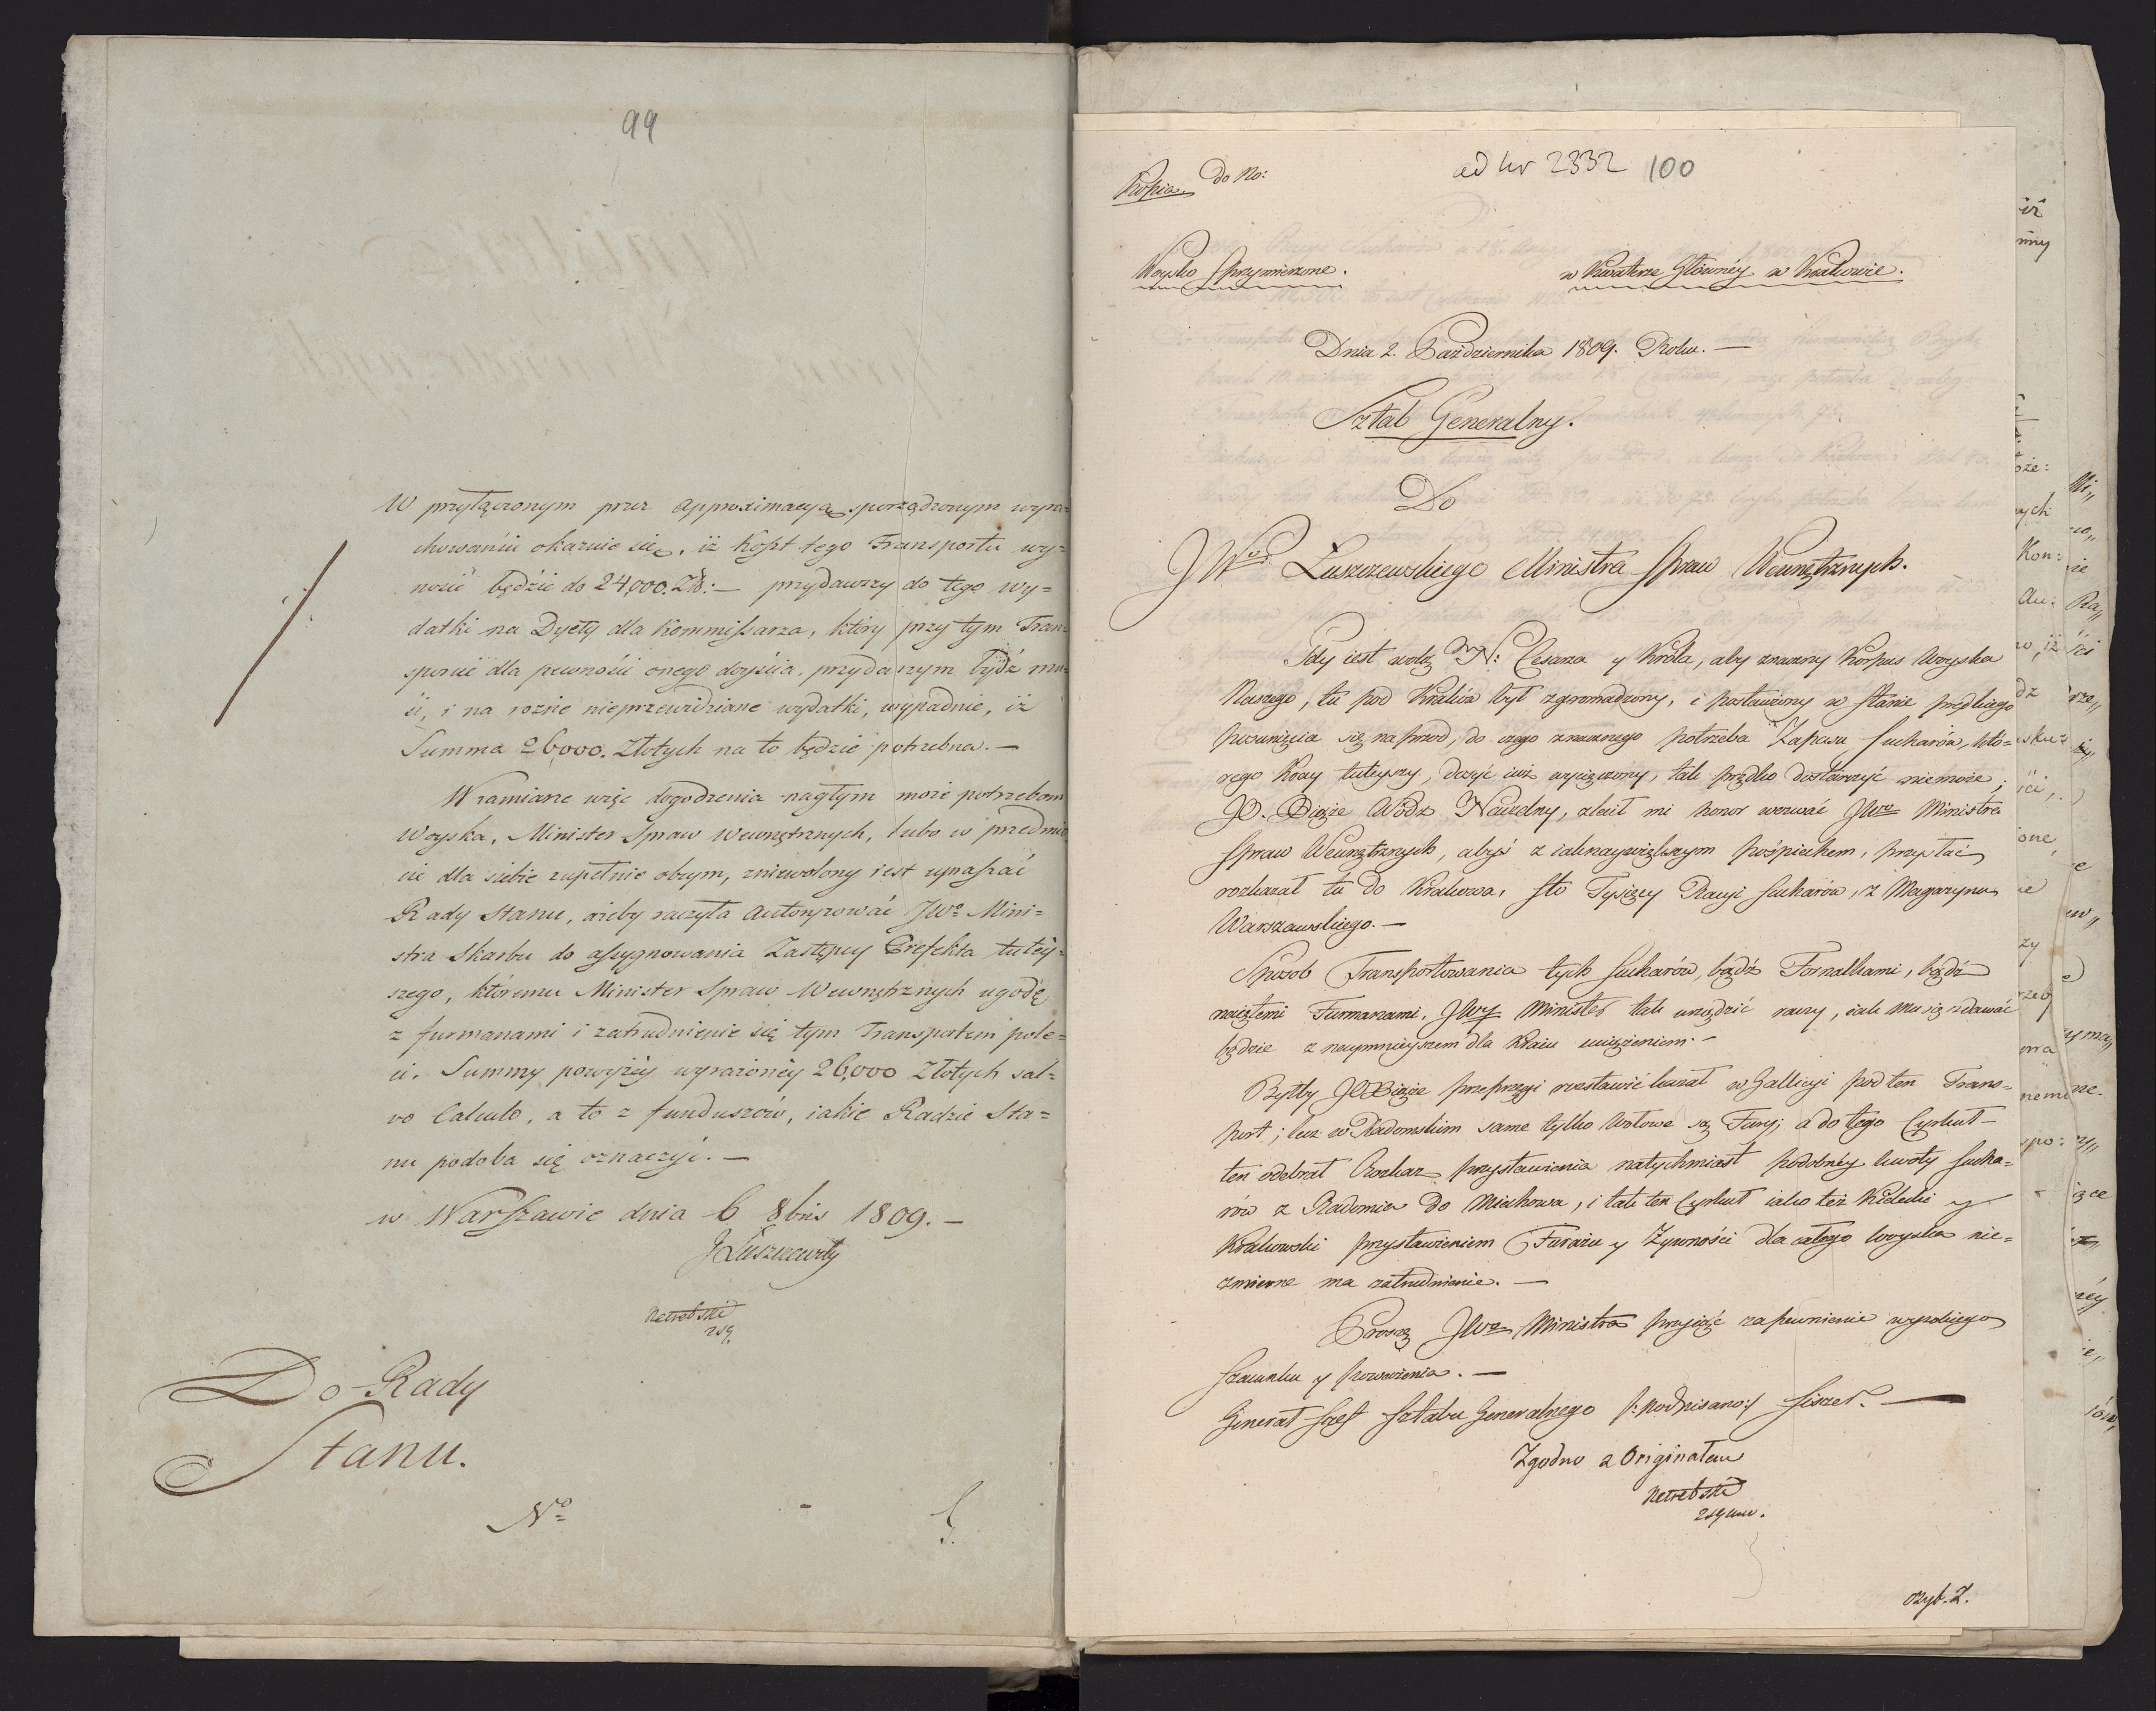 99
W przyłączonym przez approximacyą sporządzonym wyra=
chowaniu okazuie się, iż koszt tego Transportu wy=
nosić będzie do 24,000. Zł: — przydawszy do tego wy=
datki na Dyety dla Kommissarza, który przy tym Tran=
sporcie dla pewności onego doyścia, przydanym bydź mu=
si, i na rożne nieprzewidziane wydatki, wypadnie, iż
Summa 26000. Złotych na to będzie potrzebna. —
W zamiarze więc dogodzenia nagłym może potrzebom
Woyska, Minister Spraw Wewnętrznych, lubo w przedmio
cie dla siebie zupełnie obcym, zniewolony iest upraszać
Rady Stanu, ażeby raczyła autoryzować JWo Mini=
stra Skarbu do assygnowania Zastępcy Prefekta tutéy=
szego, któremu Minister Spraw Wewnętrznych ugodę
z furmanami i zatrudnienie się tym Transportem pole=
ci. Summy powyżéy wyrażonéy 26,000 Złotych sal=
vo Calculo, a to z funduszów, iakie Radzie Sta=
nu podoba się oznaczyć. —
w Warszawie dnia 6 8bris 1809. —
JŁuszczewsky
Netrebski
zsg.
Do Rady
Stanu.
No
ad Nr 2332 100
Kopia. do No:
Woysko Sprzymierzone.
w Kwaterze Główney w Krakowie.
Dnia 2. Października 1809. Roku. —
Sztab Generalny.
Do
JWo Łuszczewskiego Ministra Spraw Wewnętrznych.
Gdy iest wolą N: Cesarza y Króla, aby znaczny Korpus Woyska
Naszego, tu pod Kraków był zgromadzony, i postawiony w stanie prędkiego
posunięcia się naprzod, do czego znacznego potrzeba Zapasu Sucharów, któ=
rego Kray tuteyszy, dosyć iuż wycięczony, tak prędko dostarczyć niemoże;
JO. Xiąże Wódz Naczelny, zlecił mi honor wezwać JWo Ministra
Spraw Wewnętrznych, abyś z iaknaywiększym pośpiechem, przysłać
rozkazał tu do Krakowa, sto Tysięcy Racyi Sucharów, z Magazynu
Warszawskiego. —
Sposob Transportowania tych Sucharów, bądź Fornalkami, bądź
naiętemi Furmanami, JWy Minister tak urządzić raczy, iak mu się zdawać
będzie z nayymnieyszem dla Kraiu uciążeniem. —
Byłby JOXiąże przeprzęgi rozstawić kazał w Gallicyi pod ten Trans=
port; lecz w Radomskim same tylko Wołowe są Fury; a do tego Cyrkuł
ten odebrał Rozkaz przystawienia natychmiast podobney kwoty Sucha=
rów z Radomia do Miechowa, i tak ten Cyrkuł iako też Kielecki y
Krakowski przystawieniem Furażu y Żywności dla całego woyska nie=
zmierne ma zatrudnienie. —
Proszę JWo Ministra przyiąć zapewnienie wysokiego
szacunku y poważenia. —
Generał Szef Sztabu Generalnego /:podpisano:/ Fiszer. —
Zgodno z Originałem
Netrebski
zsg